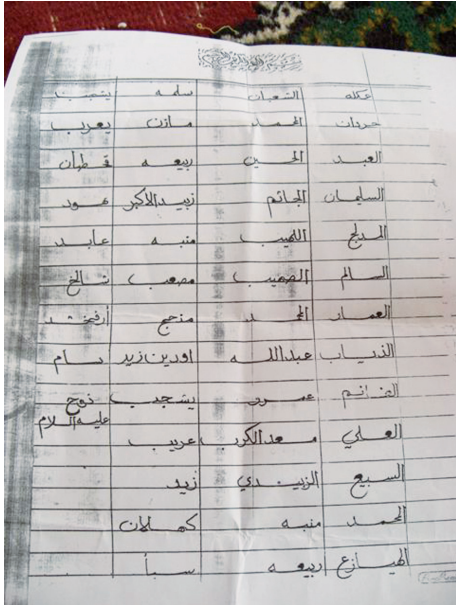 عكله الشعبان سلمه يشجب
حردان الحمد مازن يعرب
العبد الحسين ربيعه قحطان
السليمان الجاسم زبيد الاكبر هود
المدلج اللهيب منبه عابد
السالم الصهيب مصعب شالخ
العمار المحمد مذحج أرفخشد
الذياب عبدالله اودبن زيد سام
الغانم عمرو يشجب نوح
عليه السلام
العلي معد الكرب عريب
السبع الزبيدي زيد
الحمد منبه كهلان
الهيازع ربيعه سبأ